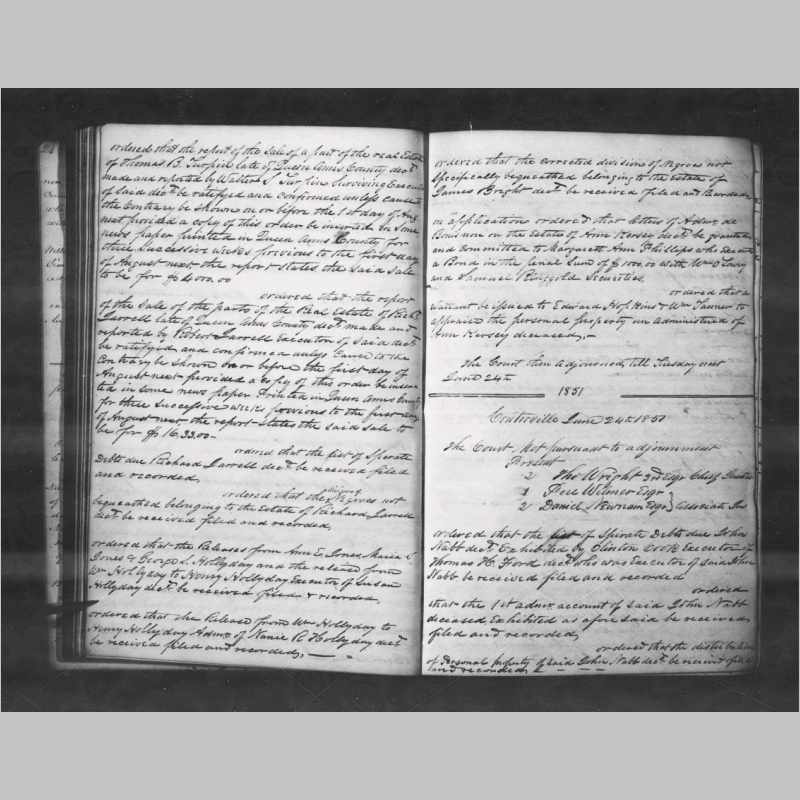 ordered that the report of the Sale of a part of the real Estate
of Thomas B. Turpin late of Queen Anns County decd
made and reported by Walter S. Turpin Surviving Executor
of said decd be ratified and confirmed unless cause to
the Contrary be shown on or before the 1st day of Aug
next provided a copy of this order be inserted in some
news paper printed in Queen Anns County for
three successive weeks previous to the first day
of August next, the report states the said Sale
to be for $4000.00
ordered that the report
of the Sale of the parts of the Real Estate of Richd
Jarrell late of Queen Anns County decd made and
reported by Robert Jarrell Executor of said decd
be ratifyed and confirmed unless Cause to the
Contrary be shown on or before the first day of
August next provided a Copy of this order be inser
ted in some news paper Printed in Queen Anns County
for three Successive weeks previous to the first day
of August next the report states the said sale to
be for $1633.00
ordered that the list of Sperate
Debts due Richard Jarrell decd be received filed
and recorded
ordered that the division of Negroes not
bequeathed belonging to the Estate of Richard Jarrell
decd be received filed and recorded,
ordered that the Releases from Ann E. Jones Maria L
Jones & George S. Hollyday and the release from
Wm Hollyday to Henry Hollyday Executor of Susan
Hollyday decd be received filed & recorded
ordered that the Release from Wm Hollyday to
Henry Hollyday Admr of R. Hollyday decd
be received filed and recorded,
ordered that the corrected division of Negroes not
Specifically bequeathed belonging to the estate of
James Bright decd be received filed and Recorded
on application ordered that letters of Admr de
Bonis non on the Estate of Ann Kersey decd be granted
and Committed to Margarett Ann Phillips who Execute
a Bond in the penal Sum of $1000.00 with Wm
and Samuel Ringgold Securities
ordered that a
warrant be issued to Edward Hopkins & Wm Tanner to
appraise the personal property un administered of
Ann Kersey deceased,
The Court then adjourned till Tuesday next
June 24th
1851
Centreville June 24th 1851
The Court Met pursuant to adjournment
Present
2 Tho Wright 3rd Esqr Chief Justice
1 Pere Wilmer Esqr
2 Daniel Newnam Esqr Associate Jus
ordered that the list of Sperate Debts due John
Nabb decd Exhibited by Clinton Cook Executor of
Thomas H. Ford decd who was Executor of said John
Nabb be received filed and recorded
ordered
that the 1st admr account of said John Nabb
deceased Exhibited as afore said be received
filed and recorded
ordered that the distribution
of Personal property of said John Nabb decd be received filed
and recorded